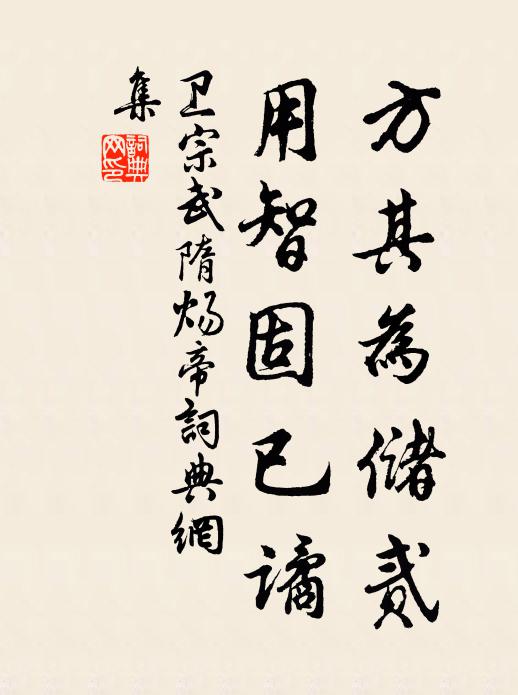 方其為儲貳
用智固已譎
卫宗武隋煬帝詞典網
集
詞典網印